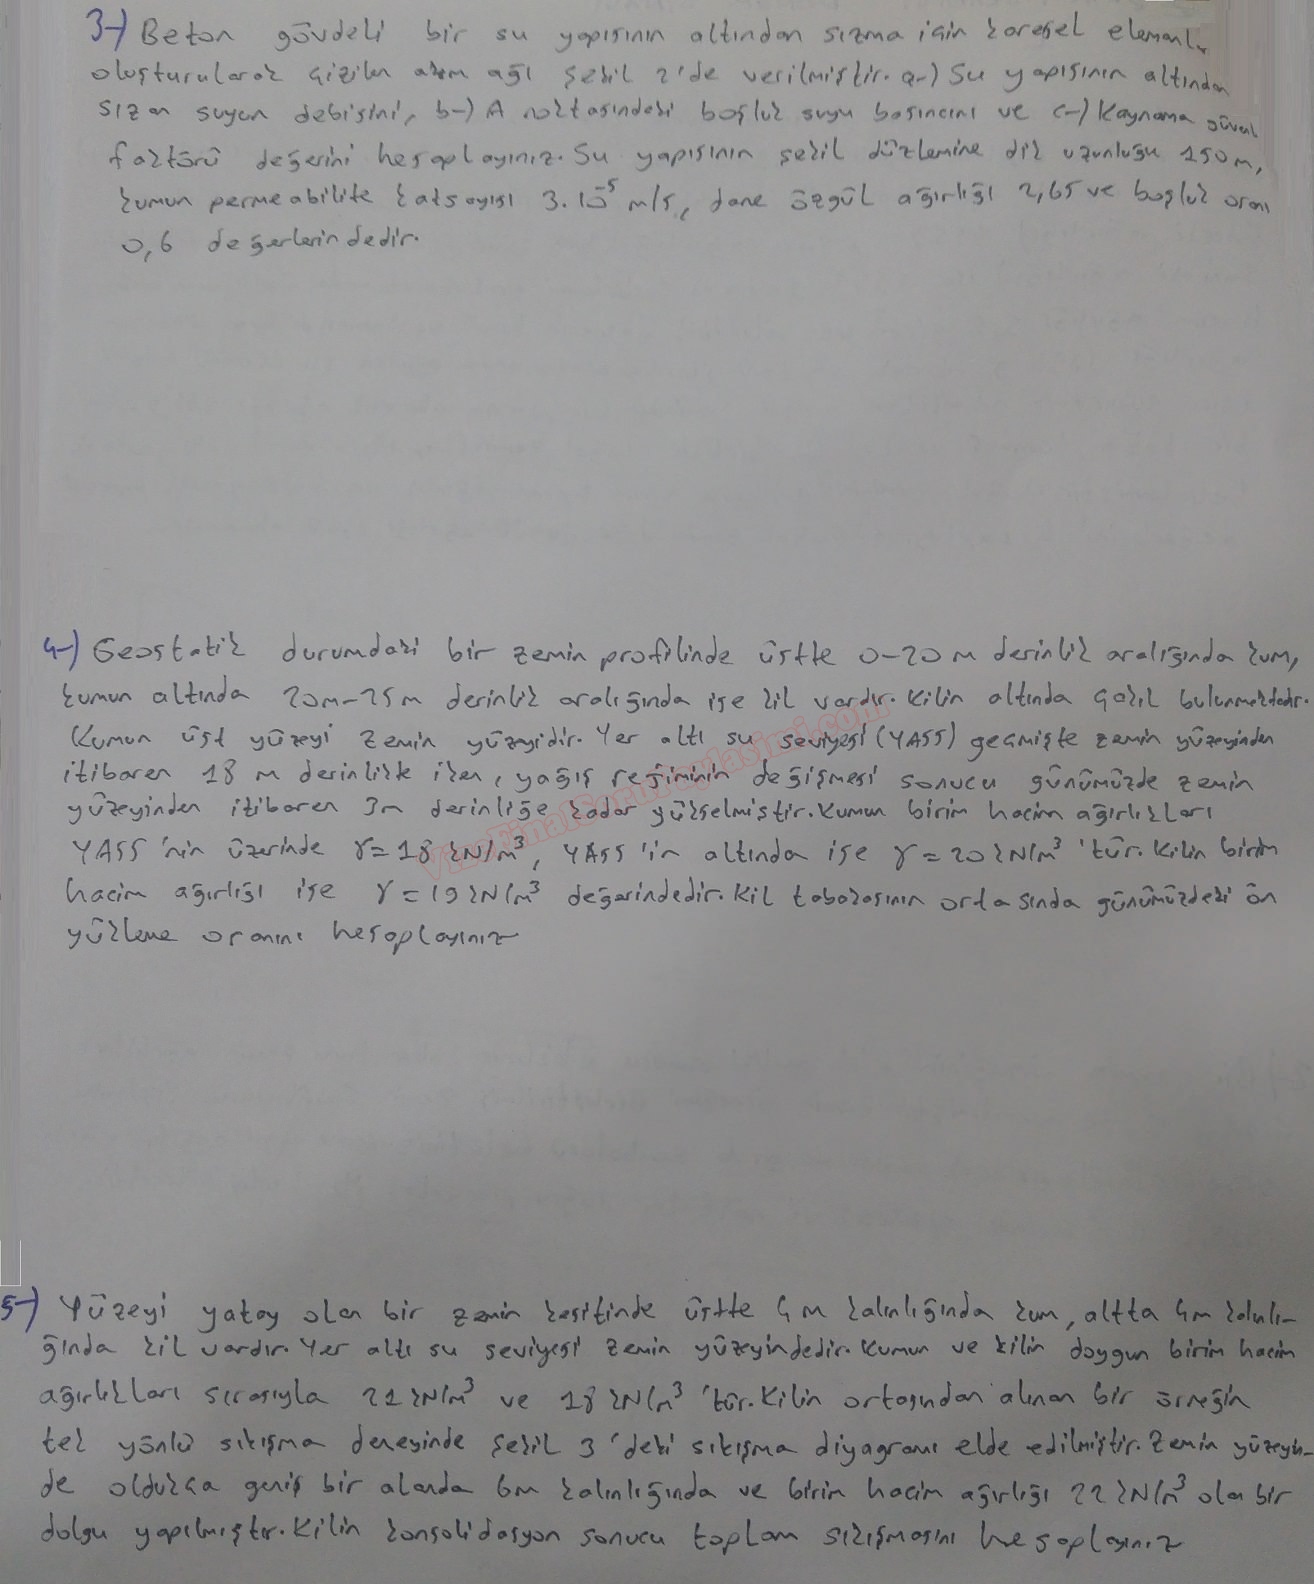 3-) Beton gövdeli bir su yapısının altından sızma için karesel elemanlar
oluşturularak çizilen akım ağı Şekil 2'de verilmiştir. a-) Su yapısının altından
sızan suyun debisini, b-) A noktasındaki boşluk suyu basıncını ve c-) Kaynama güvenl
faktörü değerini hesaplayınız. Su yapısının şekil düzlemine dik uzunluğu 150 m,
kumun permeabilite katsayısı 3.10⁻⁵ m/s, dane özgül ağırlığı 2,65 ve boşluk oranı
0,6 değerlerindedir.
4-) Geostatik durumdaki bir zemin profilinde üstte 0-20 m derinlik aralığında kum,
kumun altında 20m-25m derinlik aralığında ise kil vardır. Kilin altında çakıl bulunmaktadır.
Kumun üst yüzeyi zemin yüzeyidir. Yer altı su seviyesi (YASS) geçmişte zemin yüzeyinden
itibaren 18 m derinlikte iken, yağış rejiminin değişmesi sonucu günümüzde zemin
yüzeyinden itibaren 3m derinliğe kadar yükselmiştir. Kumun birim hacim ağırlıkları
YASS'nin üzerinde γ=18 kN/m³, YASS'in altında ise γ=20 kN/m³ 'tür. Kilin birim
hacim ağırlığı ise γ=19 kN/m³ değerindedir. Kil tabakasının ortasında günümüzdeki ön
yükleme oranını hesaplayınız
VizeFinalSoruPaylasimi.com
5-) Yüzeyi yatay olan bir zemin kesitinde üstte 4 m kalınlığında kum, altta 4m kalınlı-
ğında kil vardır. Yer altı su seviyesi zemin yüzeyindedir. Kumun ve kilin doygun birim hacim
ağırlıkları sırasıyla 21 kN/m³ ve 18 kN/m³ 'tür. Kilin ortasından alınan bir örneğin
tek yönlü sıkışma deneyinde Şekil 3 'deki sıkışma diyagramı elde edilmiştir. Zemin yüzeyin-
de oldukça geniş bir alanda 6m kalınlığında ve birim hacim ağırlığı 22 kN/m³ olan bir
dolgu yapılmıştır. Kilin konsolidasyon sonucu toplam sıkışmasını hesaplayınız